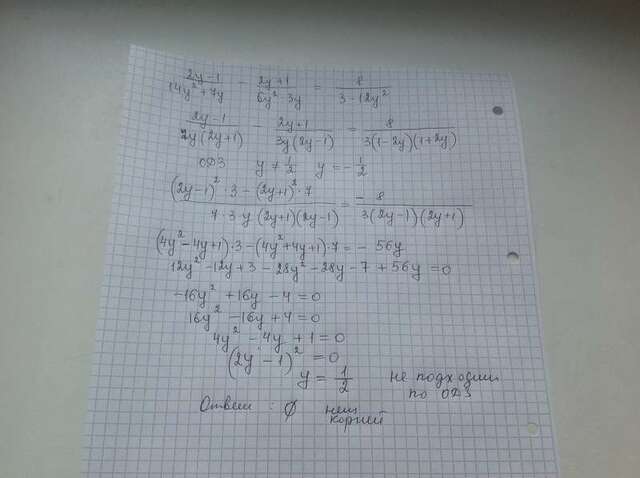 (2y-1)/(14y²+7y) - (2y+1)/(6y²-3y) = 8/(3-12y²)
(2y-1)/(7y(2y+1)) - (2y+1)/(3y(2y-1)) = 8/(3(1-2y)(1+2y))
ОДЗ y ≠ 1/2 y = -1/2
((2y-1)²·3-(2y+1)²·7)/(7·3y(2y+1)(2y-1)) = -8/(3(2y-1)(2y+1))
(4y²-4y+1)·3-(4y²+4y+1)·7 = -56y
12y²-12y+3-28y²-28y-7+56y=0
-16y²+16y-4=0
16y²-16y+4=0
4y²-4y+1=0
(2y-1)²=0
y = 1/2 не подходит
по ОДЗ
Ответ: ∅ нет
корней